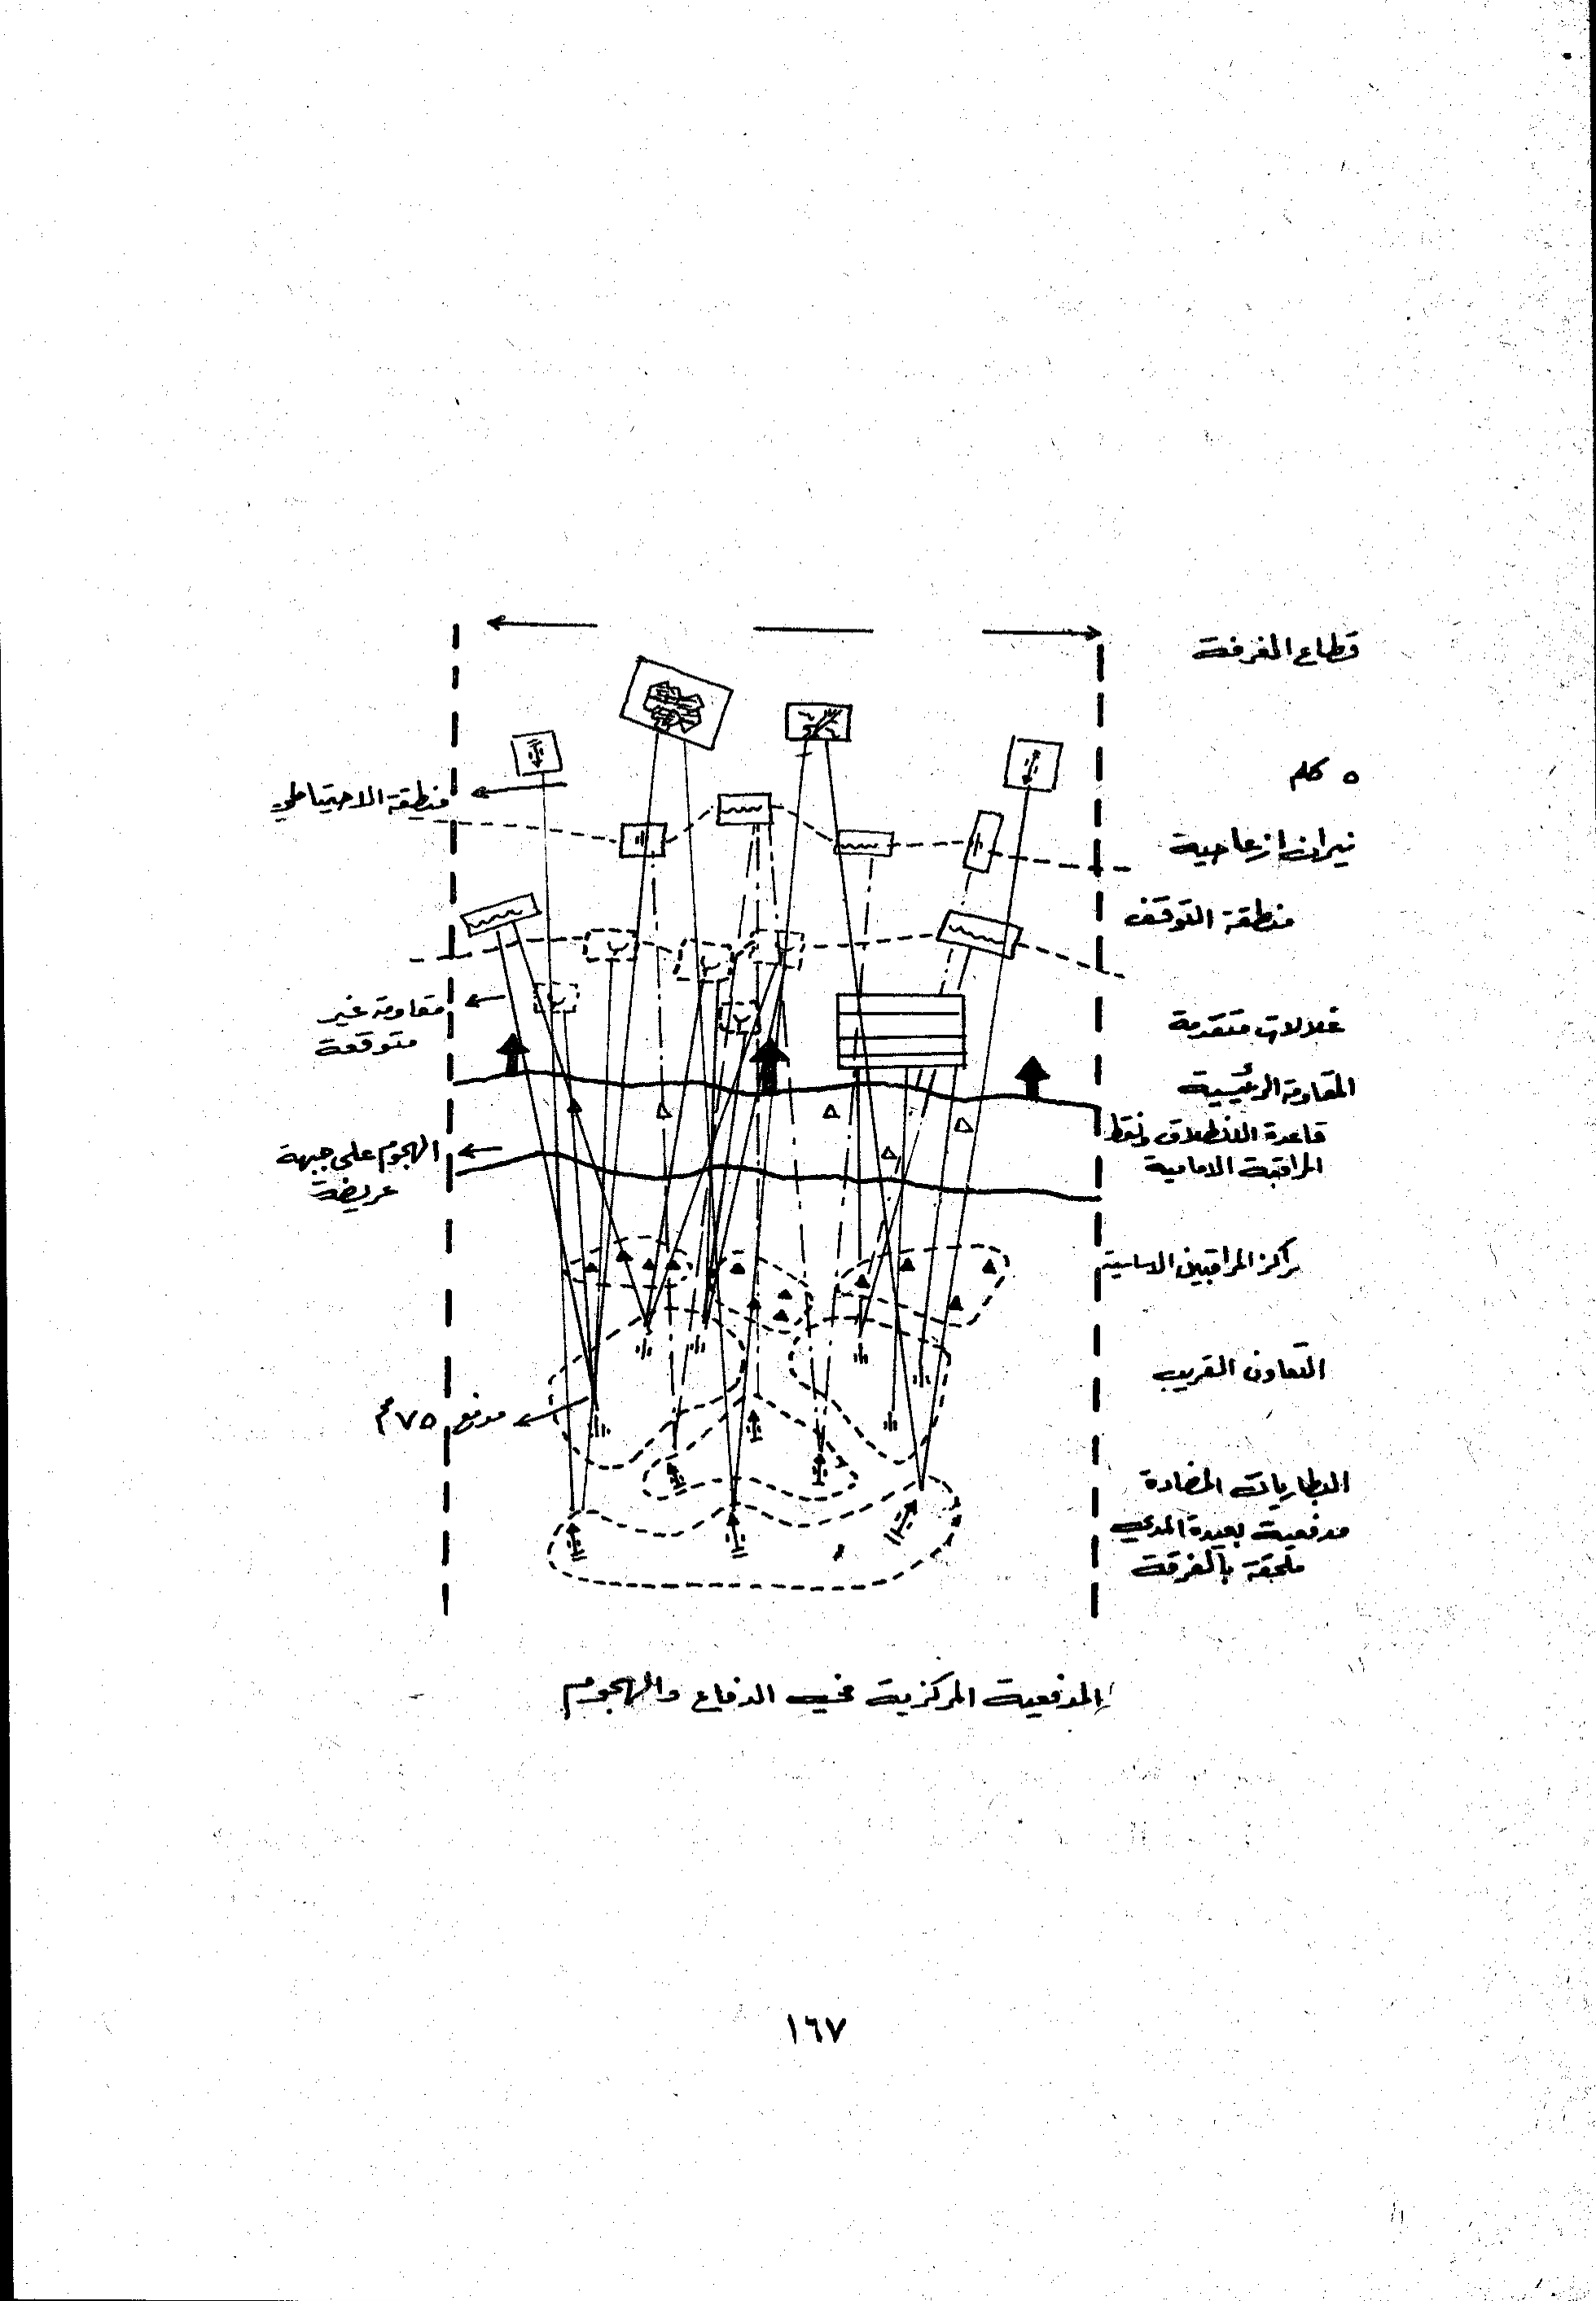 قطاع الفرقة
٥ كلم
منطقة الاحتياطي
نيران ازعاجية
منطقة التوقف
مقاومة غير
متوقعة
غلالات متقدمة
المقاومة الرئيسية
قاعدة الانطلاق ونقط
المراقبة الامامية
الهجوم على جبهة
عريضة
مراكز المراقبين الاساسية
التعاون القريب
مدفع ٧٥ مم
البطاريات المضادة
مدفعية بعيدة المدى
ملحقة بالفرقة
المدفعية المركزية في الدفاع والهجوم
١٦٧